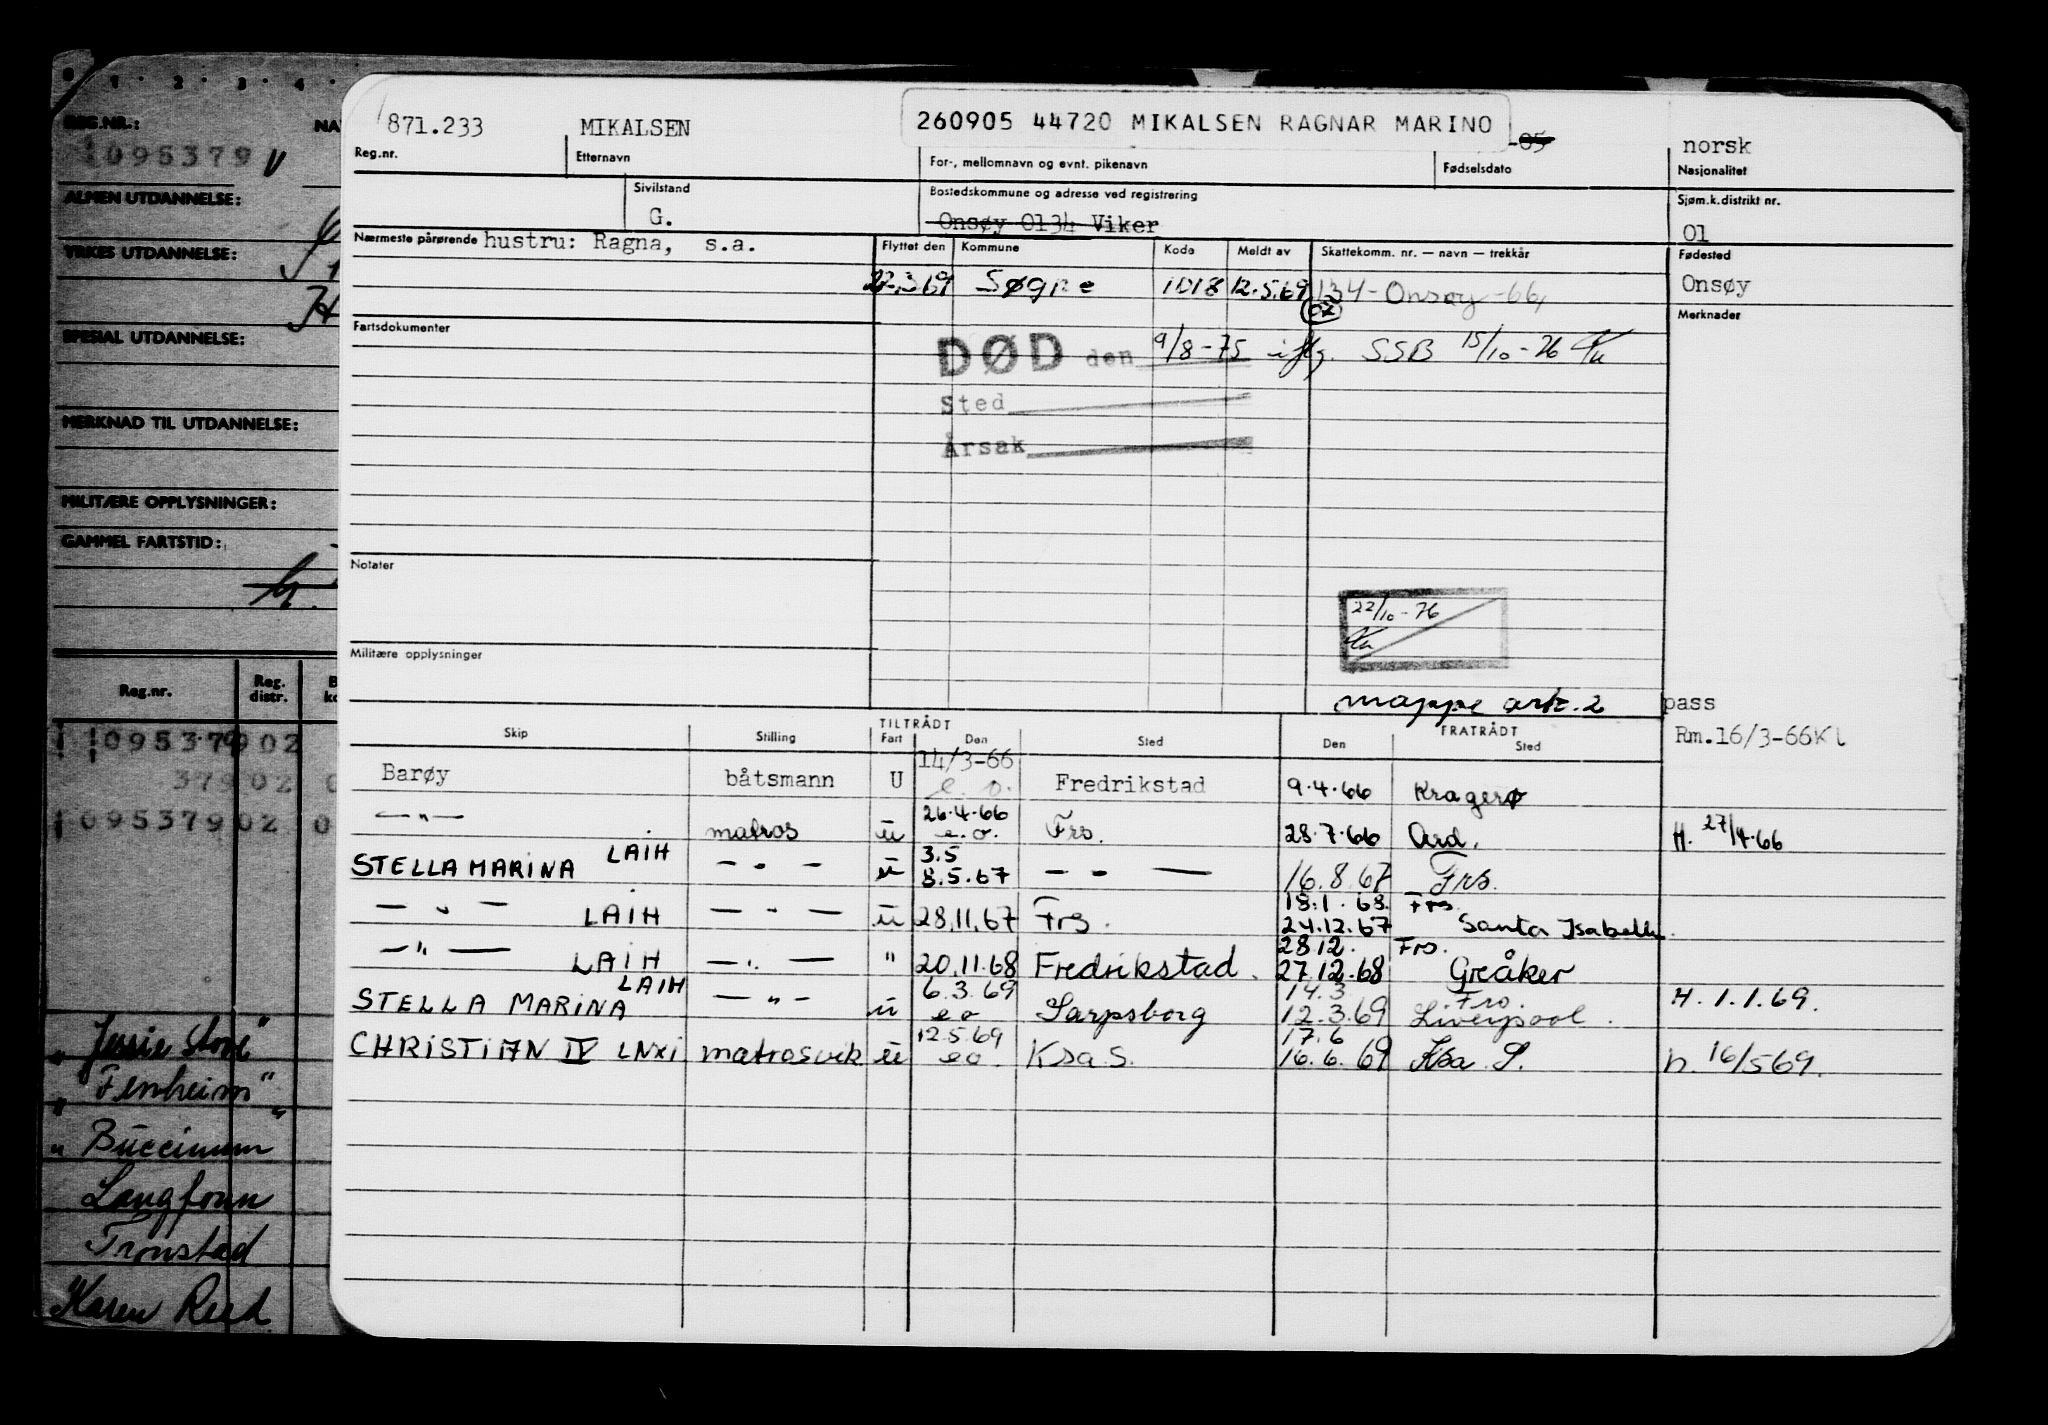 0 1 2 3 4
REG.NR.: NA
1095379 V
ALMEN UTDANNELSE:
YRKES UTDANNELSE:
SPESIAL UTDANNELSE:
MERKNAD TIL UTDANNELSE:
MILITÆRE OPPLYSNINGER:
GAMMEL FARTSTID:
Reg.nr. Reg. distr.
1095379 02
379 02 0
1095379 02 0
"Jessie Stove"
"Fenheim"
"Buccinum"
Langfonn
Tronstad
Karen Reed
871.233 MIKALSEN 260905 44720 MIKALSEN RAGNAR MARINO -05 norsk
Reg.nr. Etternavn For-, mellomnavn og evnt. pikenavn Fødselsdato Nasjonalitet
Sivilstand Bostedskommune og adresse ved registrering Sjøm.k.distrikt nr.
G. Onsøy 0134 Viker 01
Nærmeste pårørende hustru: Ragna, s.a. Flyttet den Kommune Kode Meldt av Skattekomm. nr. — navn — trekkår Fødested
22.3.69 Søgne 1018 12.5.69 134-Onsøy-66, Onsøy
02
Merknader
Fartsdokumenter
DØD den 9/8-75 iflg. SSB 15/10-76
Sted
Årsak
Notater
22/10-76
Militære opplysninger
mappe ark. 2 pass
TILTRÅDT FRATRÅDT Rm.16/3-66Kl
Skip Stilling Fart Den Sted Den Sted
Barøy båtsmann U 14/3-66 e.o. Fredrikstad 9.4.66 Kragerø
—"— matros u 26.4.66 e.o. Frs. 28.7.66 Ard. H. 27/4.66
STELLA MARINA LAIH — " — u 3.5 8.5.67 — " — 16.8.67 Frs.
— " — LAIH — " — u 28.11.67 Frs. 18.1.68. Frs. 24.12.67 Santa Isabella
— " — LAIH — " — " 20.11.68 Fredrikstad. 28.12. Frs. 27.12.68 Greåker
STELLA MARINA LAIH — " — u 6.3.69 e o Sarpsborg 14.3 Frs. 12.3.69 Liverpool. H. 1.1.69.
CHRISTIAN IV LNXI matrosvik u 12.5.69 e o. Ksa S. 17.6 16.6.69 Ksa S. h. 16/5 69.